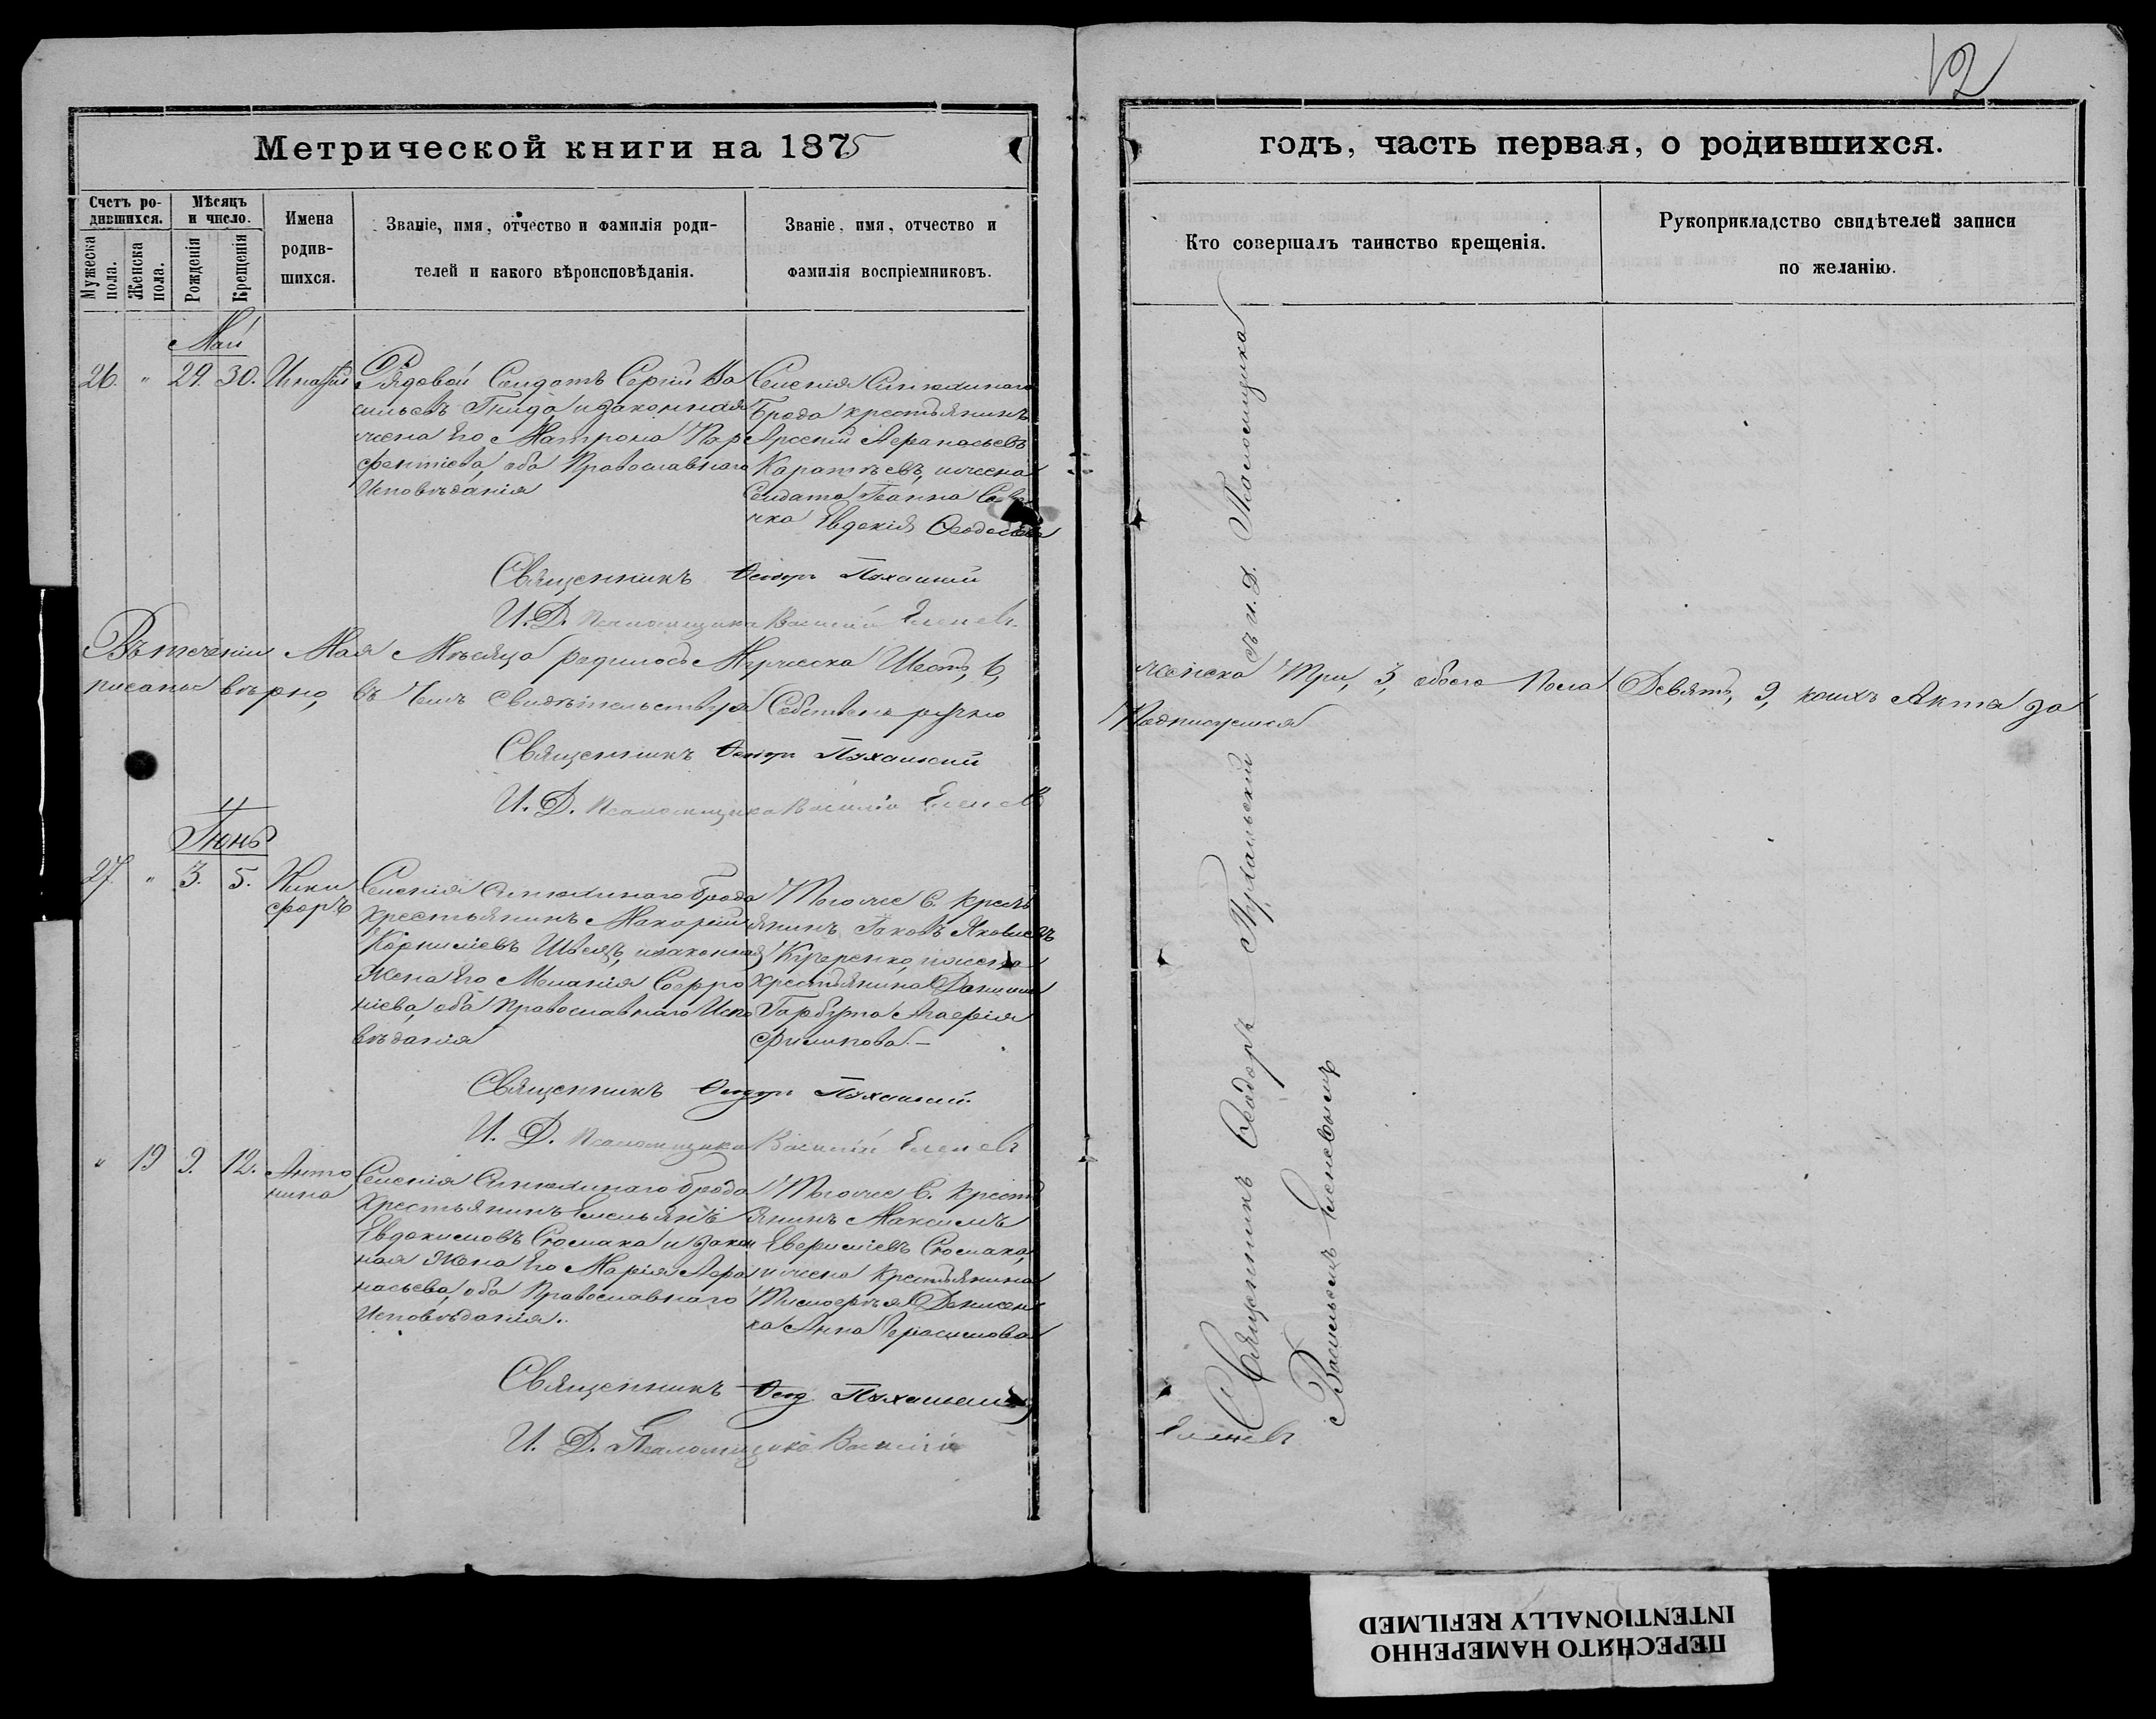 12
Метрической книги на 1875
годъ, часть первая, о родившихся.
Счетъ родившихся.
Мужеска пола.
Женска пола.
Мѣсяцъ и число.
Рожденія
Крещенія
Имена родив-
шихся.
Званіе, имя, отчество и фамилія роди-
телей и какого вѣроисповѣданія.
Званіе, имя, отчество и
фамилія воспріемниковъ.
Кто совершалъ таинство крещенія.
Рукоприкладство свидѣтелей записи
по желанію.
Май
26. " 29. 30.
Рядовой Солдатъ Сергій Ва
сильевъ Гнида, и законная
жена Его Матрона Пар
фентіева, оба Православнаго
Исповѣданія
Селенія Синюхинаго
Брода крестьянинъ
Арсеній Афанасьевъ
и жена
Солдата Іоанна
Евдокія
Священникъ Ѳеодоръ Пухальскій
И. Д. Псаломщика Василій Еленевъ
Въ теченіи Мая Мѣсяца родилось Мужеска Шесть, 6, женска Три, 3, обоего Пола Девять, 9, коихъ Акты за
писаны вѣрно, въ Чемъ Свидѣтельствуя Собственоручно Подписуемся
Священникъ Ѳеодоръ Пухальскій
И. Д. Псаломщика Василій Еленевъ
Іюнь
27. " 3. 5. Ники
форъ
Селенія Синюхинаго брода
крестьянинъ Макарій
Корниліевъ Швецъ, и законная
Жена Его Меланія Софро
ніева, оба Православнаго Испо
вѣданія
Того же С. крестъ
янинъ Іаковъ Яковлевъ
и жена
крестьянина
Гарбуза Агафія
Филипова.-
Священникъ Ѳеодоръ Пухальскій
И. Д. Псаломщика Василій Еленевъ
" 19 9. 12. Анто
нина
Селенія Синюхинаго брода
Крестьянинъ Емельянъ
Евдокимовъ Сюмака и закон
ная Жена Его Марія Афа
насьева, оба Православнаго
Исповѣданія.
Того же С. Крест
янинъ Максимъ
Сюмака,
и жена Крестьянина
Тимофея Денисен
ка Анна Герасимова
Священникъ Ѳеод Пухальскій
И. Д. Псаломщика Василій
Еленевъ
Священникъ Ѳеодоръ Пухальскій съ и. д. Псаломщика
Васильемъ Еленевымъ
ПЕРЕСНЯТО НАМЕРЕННО
INTENTIONALLY REFILMED